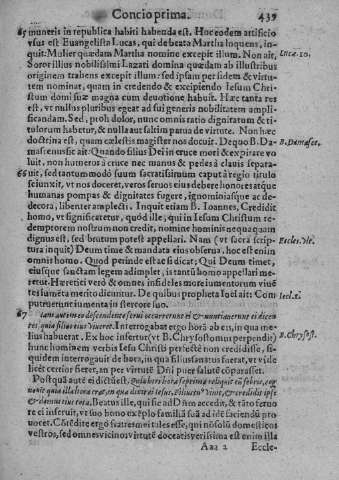 Concio prima. 439
65 muneris in republica habiti habenda est. Hoc eodem artificio
vsus est Euangelista Lucas, qui de beata Martha loquens, in-
quit: Mulier quædam Martha nomine excepit illum. Non ait, Lucæ. 10.
Soror illius nobilissimi Lazari domina quædam ab illustribus
originem trahens excepit illum: sed ipsam per fidem & virtu-
tem nominat, quam in credendo & excipiendo Iesum Chri-
stum domi suæ magna cum deuotione habuit. Hæc tanta res
est, vt nullus pluribus egeat ad sui generis nobilitatem ampli-
ficandam. Sed, proh dolor, nunc omnis ratio dignitatum & ti-
tulorum habetur, & nulla aut saltim parua de virtute. Non hæc
doctrina est, quam cælestis magister nos docuit. De quo B. Da- B. Damasce.
masc enus sic ait: Quando filius Dei in cruce mori & expirare vo
luit, non humeros à cruce nec manus & pedes à clauis separa-
66 uit, sed tantummodo suum sacratissimum caput à regio titulo
seiunxit, vt nos doceret, veros seruos eius debere honores atque
humanas pompas & dignitates fugere, ignominiasque ac de-
decora, libenter amplecti. Inquit etiam B. Ioannes, Credidit
homo, vt significaretur, quod ille, qui in Iesum Christum re-
demptorem nostrum non credit, nomine hominis nequaquam
dignus est, sed brutum potest appellari. Nam (vt sacra scrip-
tura inquit) Deum time & mandata eius obserua, hoc est enim Eccles. vlt.
omnis homo. Quod perinde est ac si dicat; Qui Deum timet,
eiusque sanctam legem adimplet, is tantũ homo appellari me-
retur. Hæretici verò & omnes infideles more iumentorum viuẽ
tes iumẽta meritò dicuntur. De quibus propheta Ioël ait: Com Ioel. 1.
putruerunt iumenta in stercore suo.
67 Iam autem eo descendente serui occurrerunt ei & nuntiauerunt ei dicen
res quia filius eius viueret. Interrogabat ergo horã ab eis, in qua me-
lius habuerat. Ex hoc infertur (vt B. Chrysostomus perpendit) B. Chrysost.
hunc hominem verbis Iesu Christi perfectè non credidisse, si-
quidem interrogauit de hora, in qua filius sanatus fuerat, vt vide
licet certior fieret, an per virtutẽ Dñi puer salutẽ cõparasset.
Postquã autẽ ei dictũ est,
Beatus ille, qui sic ad Dñm accedit, & tãto feruo
re ei inseruit, vt suo homo exẽplo familiã suã ad idẽ faciendũ pro
uocet. Cõtẽdite ergò fratres mei tales esse, qui nõ solũ domesticos
vestros, sed omnes vicinos virtutẽ doceatis: verissima est enim illa
Aaa 2 Eccle-